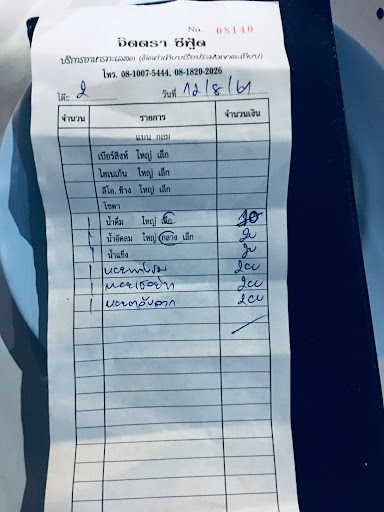 No. 08140
จิตตรา ซีฟู้ด
บริการอาหารทะเลสด (ติดท่าเทียบเรือประมง
โทร. 08-1007-5444, 08-1820-2026
โต๊ะ 2 วันที่ 12/8/61
จำนวน รายการ จำนวนเงิน
แบน กลม
เบียร์สิงห์ ใหญ่ เล็ก
ไฮเนเก้น ใหญ่ เล็ก
ลีโอ, ช้าง ใหญ่ เล็ก
โซดา
1 น้ำดื่ม ใหญ่ เล็ก
1 น้ำอัดลม ใหญ่ กลาง เล็ก 20
1 น้ำแข็ง 20
1 200
1 200
1 200